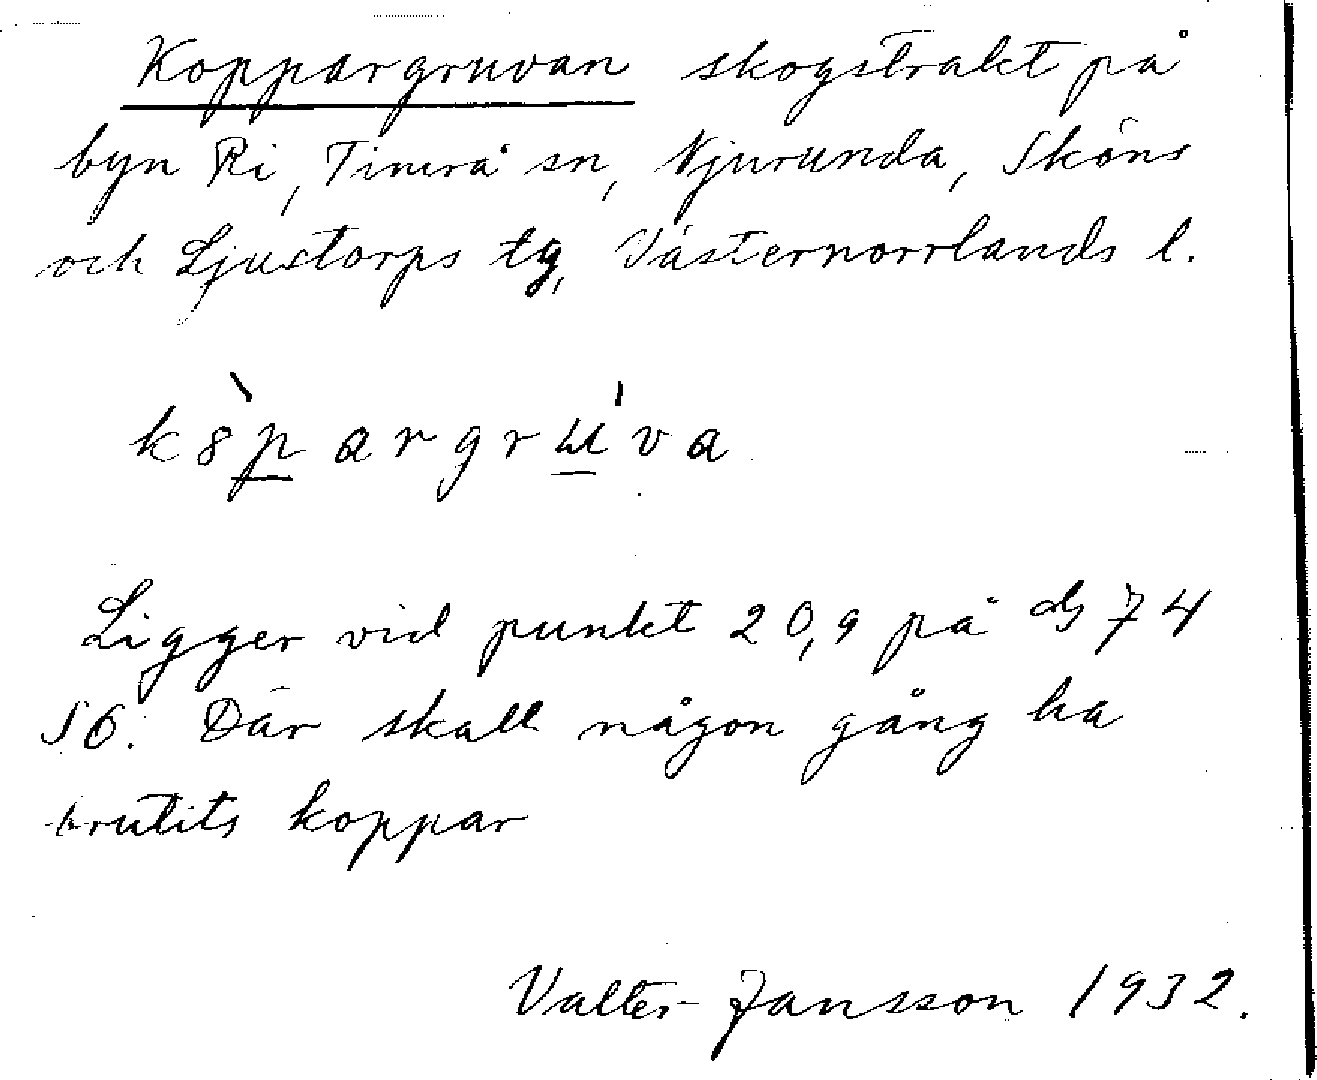 Koppargruvan skogstrakt på
byn Ri, Timrå sn, Njurunda, Sköns
och Ljustorps tg, Västernorrlands l.
k8̀pargru̍va
Ligger vid punkt 20,9 på ds 74
S6. Där skall någon gång ha
brutits koppar
Valter Jansson 1932.